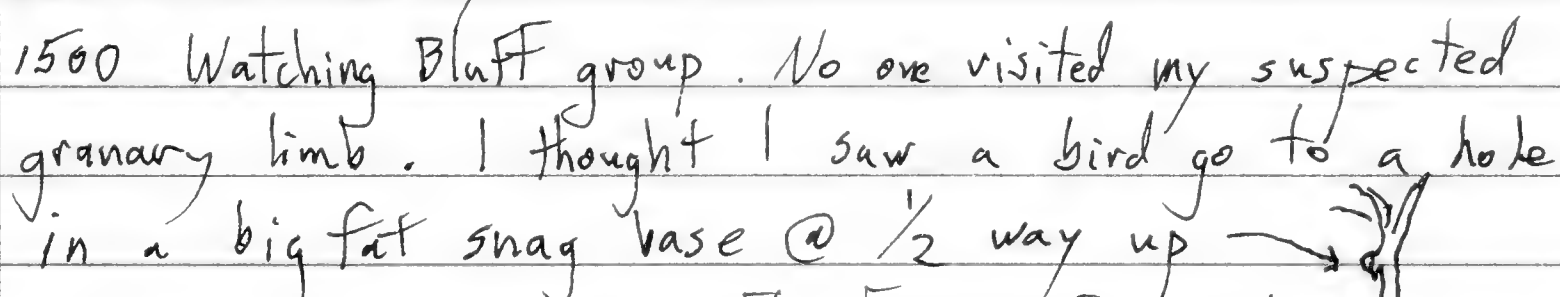 1500 Watching Bluff group. No one visited my suspected
granary limb. I thought I saw a bird go to a hole
in a big fat snag base @ 1/2 way up